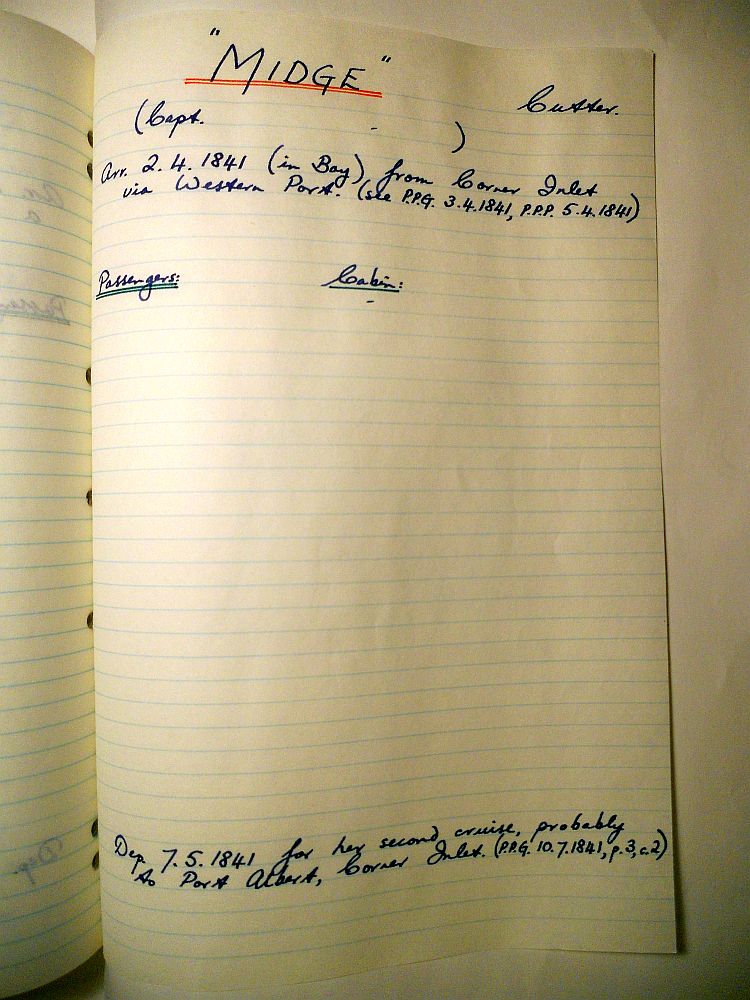 "MIDGE"
Cutter.
(Capt. - )
Arr. 2.4.1841 (in Bay) from Corner Inlet
via Western Port. (see P.P.G. 3.4.1841, P.P.P. 5.4.1841)
Passengers: Cabin:
-
Dep. 7.5.1841 for her second cruise, probably
to Port Albert, Corner Inlet. (P.P.G. 10.7.1841, p.3, c.2)
Dep.